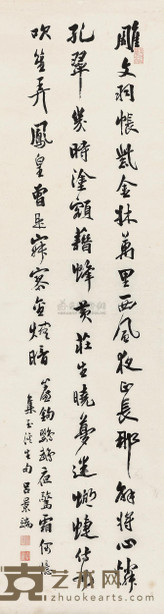 雕文羽帳紫金牀萬里西風夜正長那解將心憐
孔翠幾時塗額藉蜂黄莊生曉夢迷蝴蝶侍女
吹笙弄鳳皇曾是寂寥金燼暗
簾鉤鸚鵡夜驚霜
集玉溪生句呂景端